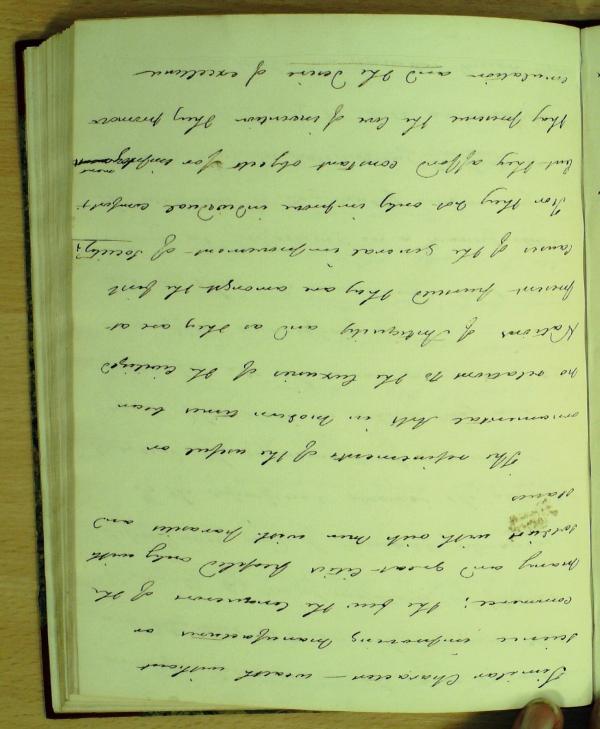 Similar Character — wealth without
science improving manufactures or
commerce; the few the conquerors of the
many and great cities peopled only with
soldiers with rich men with parasites and
slaves
The refinements of the useful or
ornamental Arts in modern times bear
no relation to the luxuries of the civilized
Nations of Antiquity and as they are at
present pursued they are amongst the first
causes of the general improvement of Society;
For they not only improve individual comforts;
but they afford constant objects for
more
they preserve the love of invention they promote
emulation and the desire of excellence